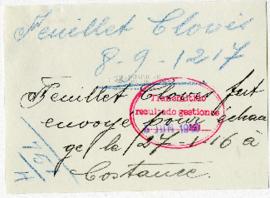 Feuillet Clovis
8-9-1217
Feuillet Clovis fut
envoyé pour échan
ge le 27-1-16 à
Costance.
Transmitido
resultado gestiones
JUN